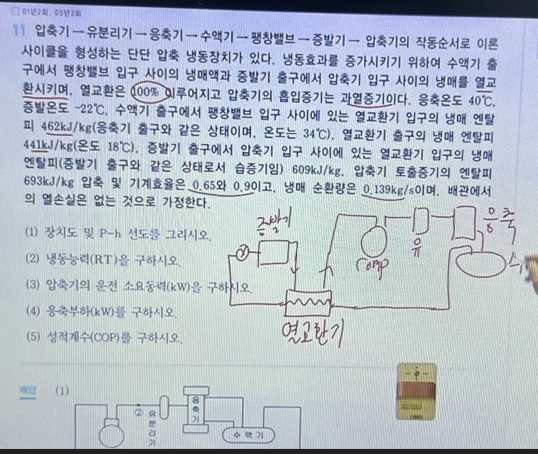 01년2회, 05년2회
11 압축기 → 유분리기 → 응축기 → 수액기 → 팽창밸브 → 증발기 → 압축기의 작동순서로 이론
사이클을 형성하는 단단 압축 냉동장치가 있다. 냉동효과를 증가시키기 위하여 수액기 출
구에서 팽창밸브 입구 사이의 냉매액과 증발기 출구에서 압축기 입구 사이의 냉매를 열교
환시키며, 열교환은 100% 이루어지고 압축기의 흡입증기는 과열증기이다. 응축온도 40℃,
증발온도 -22℃, 수액기 출구에서 팽창밸브 입구 사이에 있는 열교환기 입구의 냉매 엔탈
피 462kJ/kg(응축기 출구와 같은 상태이며, 온도는 34℃), 열교환기 출구의 냉매 엔탈피
441kJ/kg(온도 18℃), 증발기 출구에서 압축기 입구 사이에 있는 열교환기 입구의 냉매
엔탈피(증발기 출구와 같은 상태로서 습증기임) 609kJ/kg, 압축기 토출증기의 엔탈피
693kJ/kg 압축 및 기계효율은 0.65와 0.9이고, 냉매 순환량은 0.139kg/s이며, 배관에서
의 열손실은 없는 것으로 가정한다.
증발기
응축
(1) 장치도 및 P-h 선도를 그리시오.
유
comp
(2) 냉동능력(RT)을 구하시오.
(3) 압축기의 운전 소요동력(kW)을 구하시오.
(4) 응축부하(kW)를 구하시오.
열교환기
(5) 성적계수(COP)를 구하시오.
해답 (1)
②
유분리기
응축기
수액기